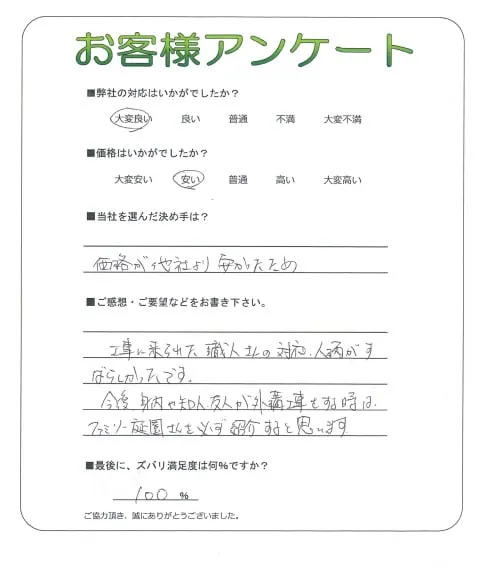 お客様アンケート
■弊社の対応はいかがでしたか？
大変良い 良い 普通 不満 大変不満
■価格はいかがでしたか？
大変安い 安い 普通 高い 大変高い
■当社を選んだ決め手は？
価格が他社より安かったため
■ご感想・ご要望などをお書き下さい。
工事に来られた職人さんの対応、人柄がす
ばらしかったです。
今後身内や知人、友人が外構工事をする時は、
ファミリー庭園さんを必ず紹介すると思います
■最後に、ズバリ満足度は何％ですか？
100 ％
ご協力頂き、誠にありがとうございました。